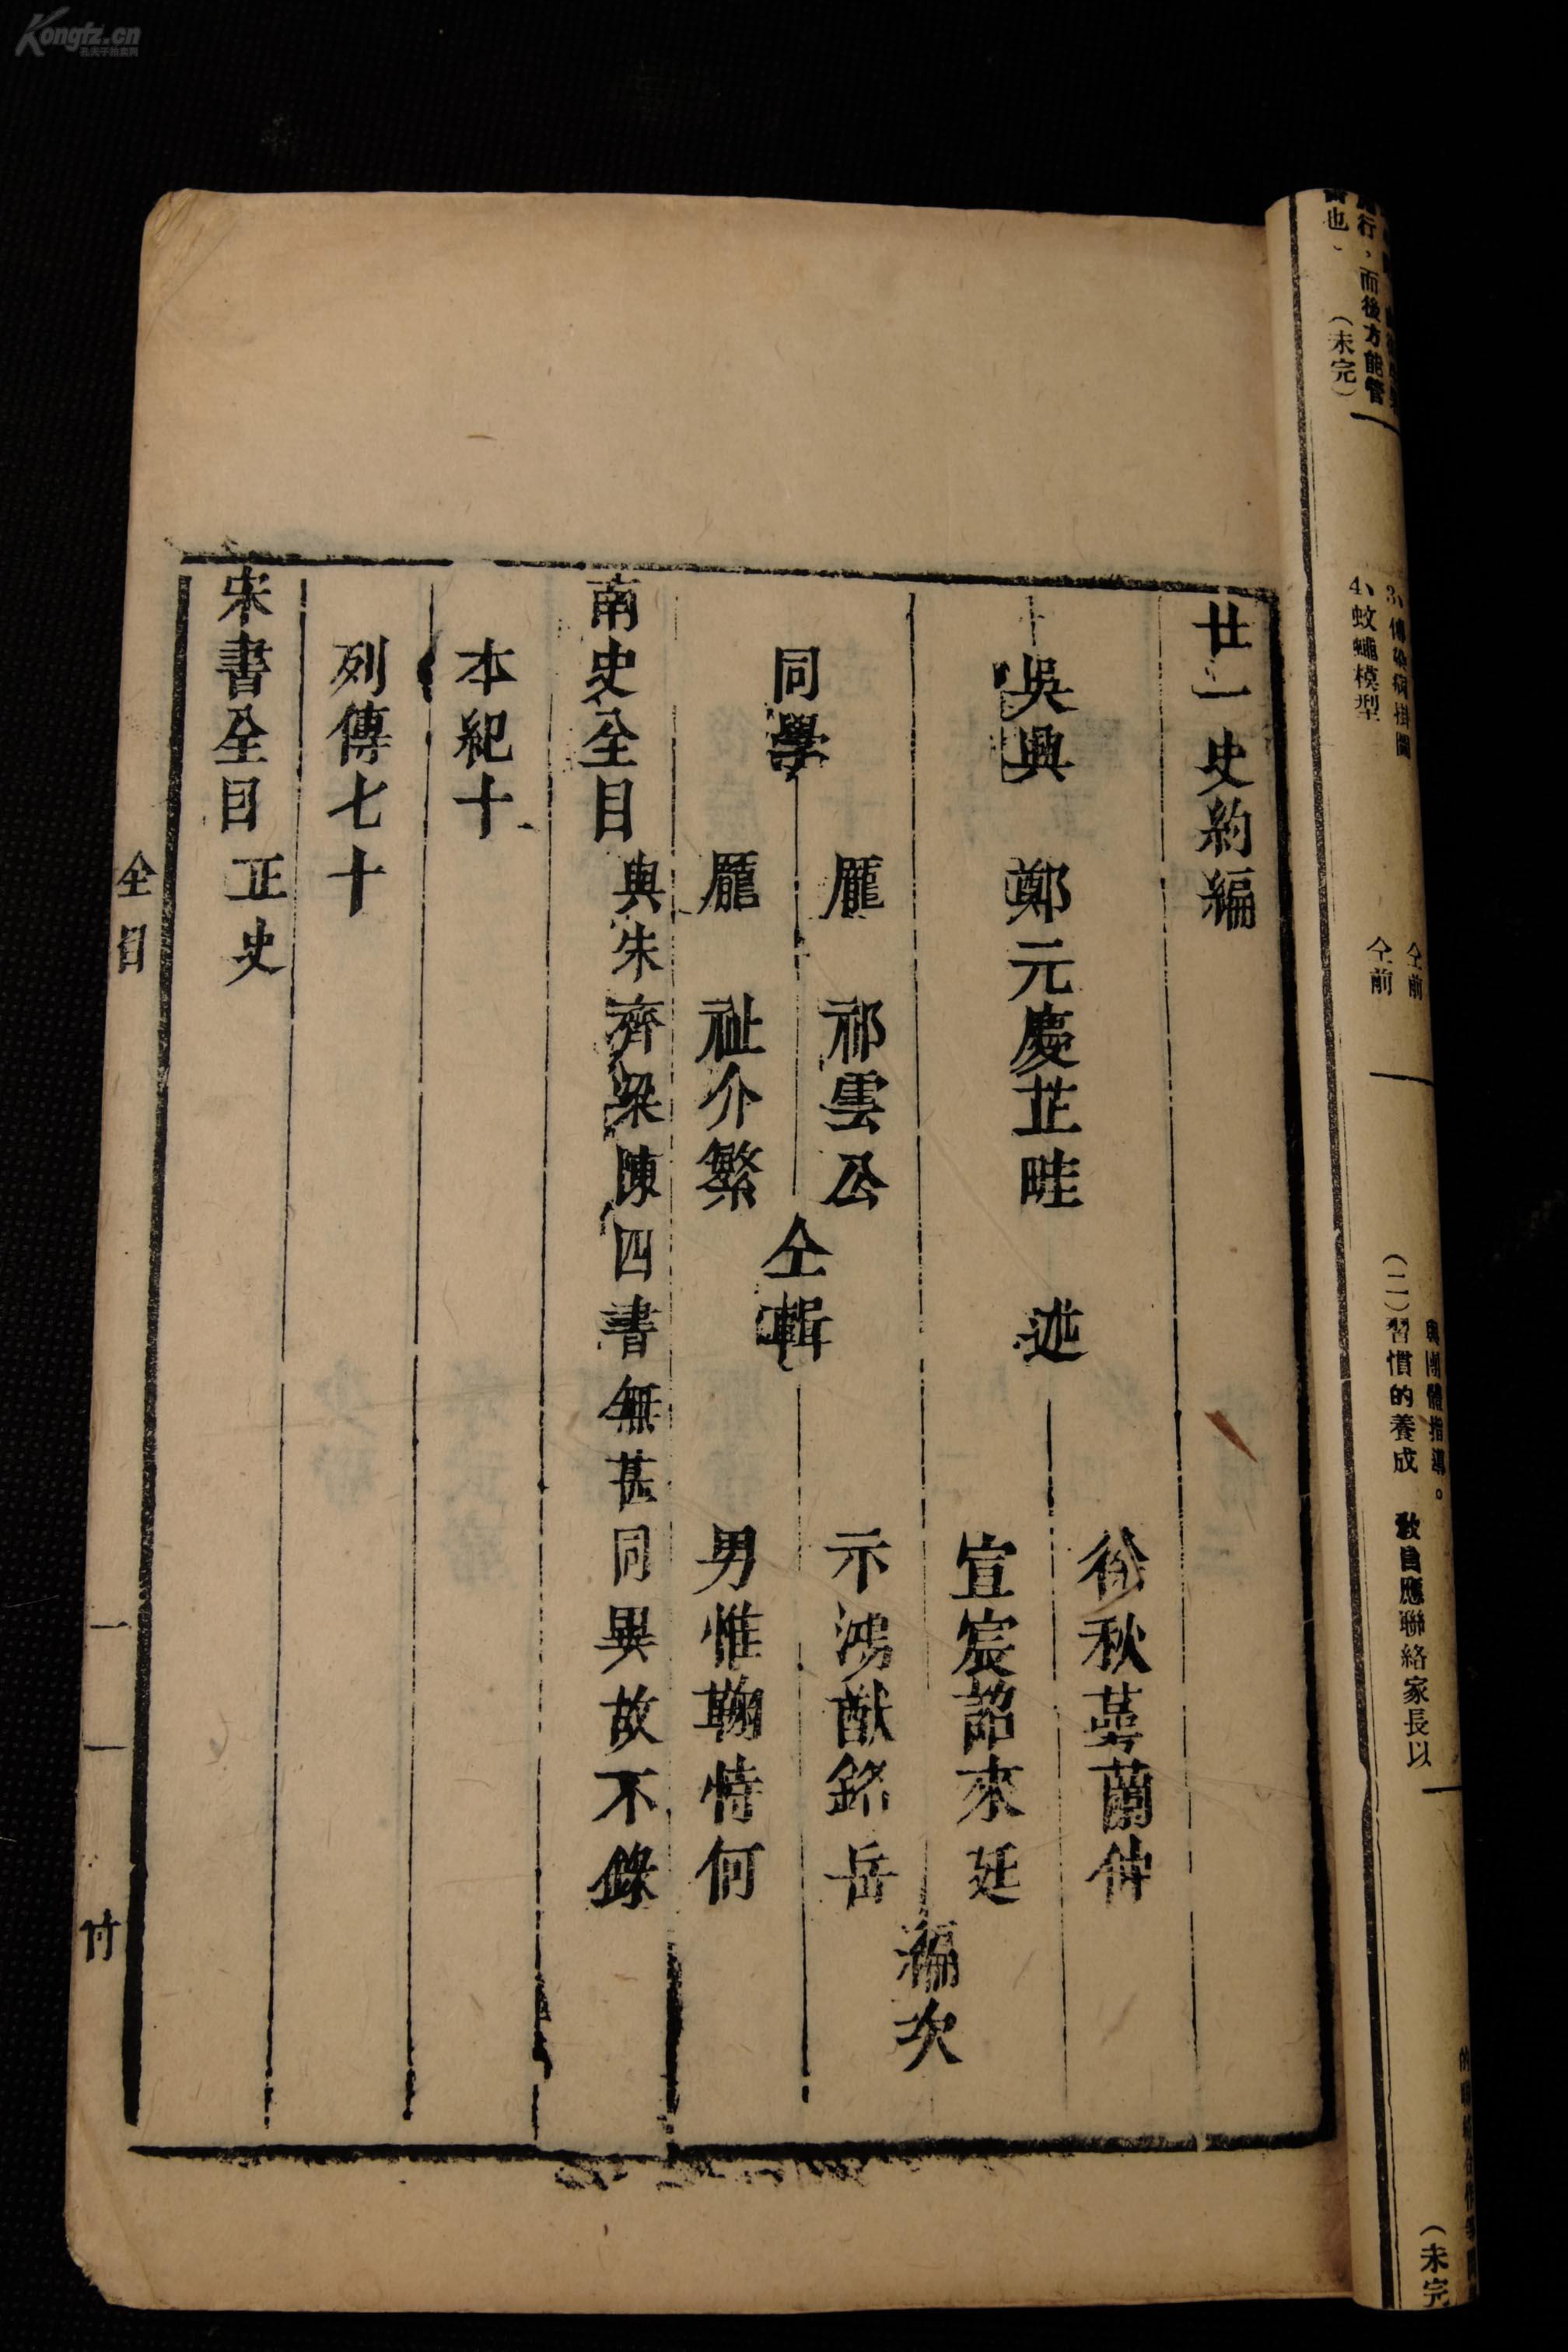 廿一史約編
吳興　鄭元慶芷畦　述
徐秋蕚蘭仲
宣宸詔來廷
同學
龎　祁雲公
龎　祉介繁
仝輯
示鴻猷銘岳
男惟鞠恃何
編次
南史全目
與朱齊梁陳四書無甚同異故不錄
本紀十
列傳七十
宋書全目　正史
全目
一
竹
也、（未完）
行，而後方能管
4、蚊蠅模型　仝前
仝前
（二）習慣的養成　教員應聯絡家長以
與團體指導。
（未完
Kongfz.cn